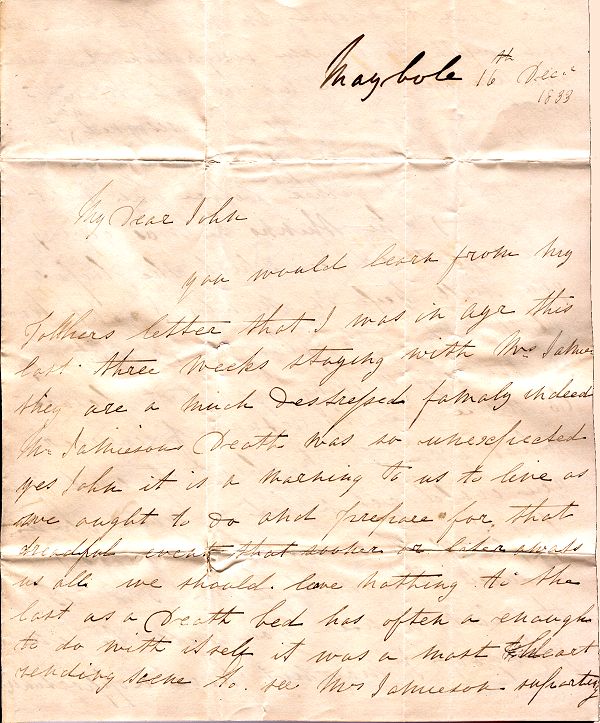 Maybole 16th Decr
1833
My Dear John
you would learn from my
Fathers letter that I was in ayr this
last three weeks staying with Mrs Jamie
they are a much destressed famaly indeed
Mr Jamiesons Death was so unexspected
yes John it is a warning to us to live as
we ought to do and prepare for that
dreadful event that sooner or later awats
us all we should leve nothing to the
last as a Death bed has often a enough
to do with itself it was a most heart
rending scene to see Mrs Jamieson suporting